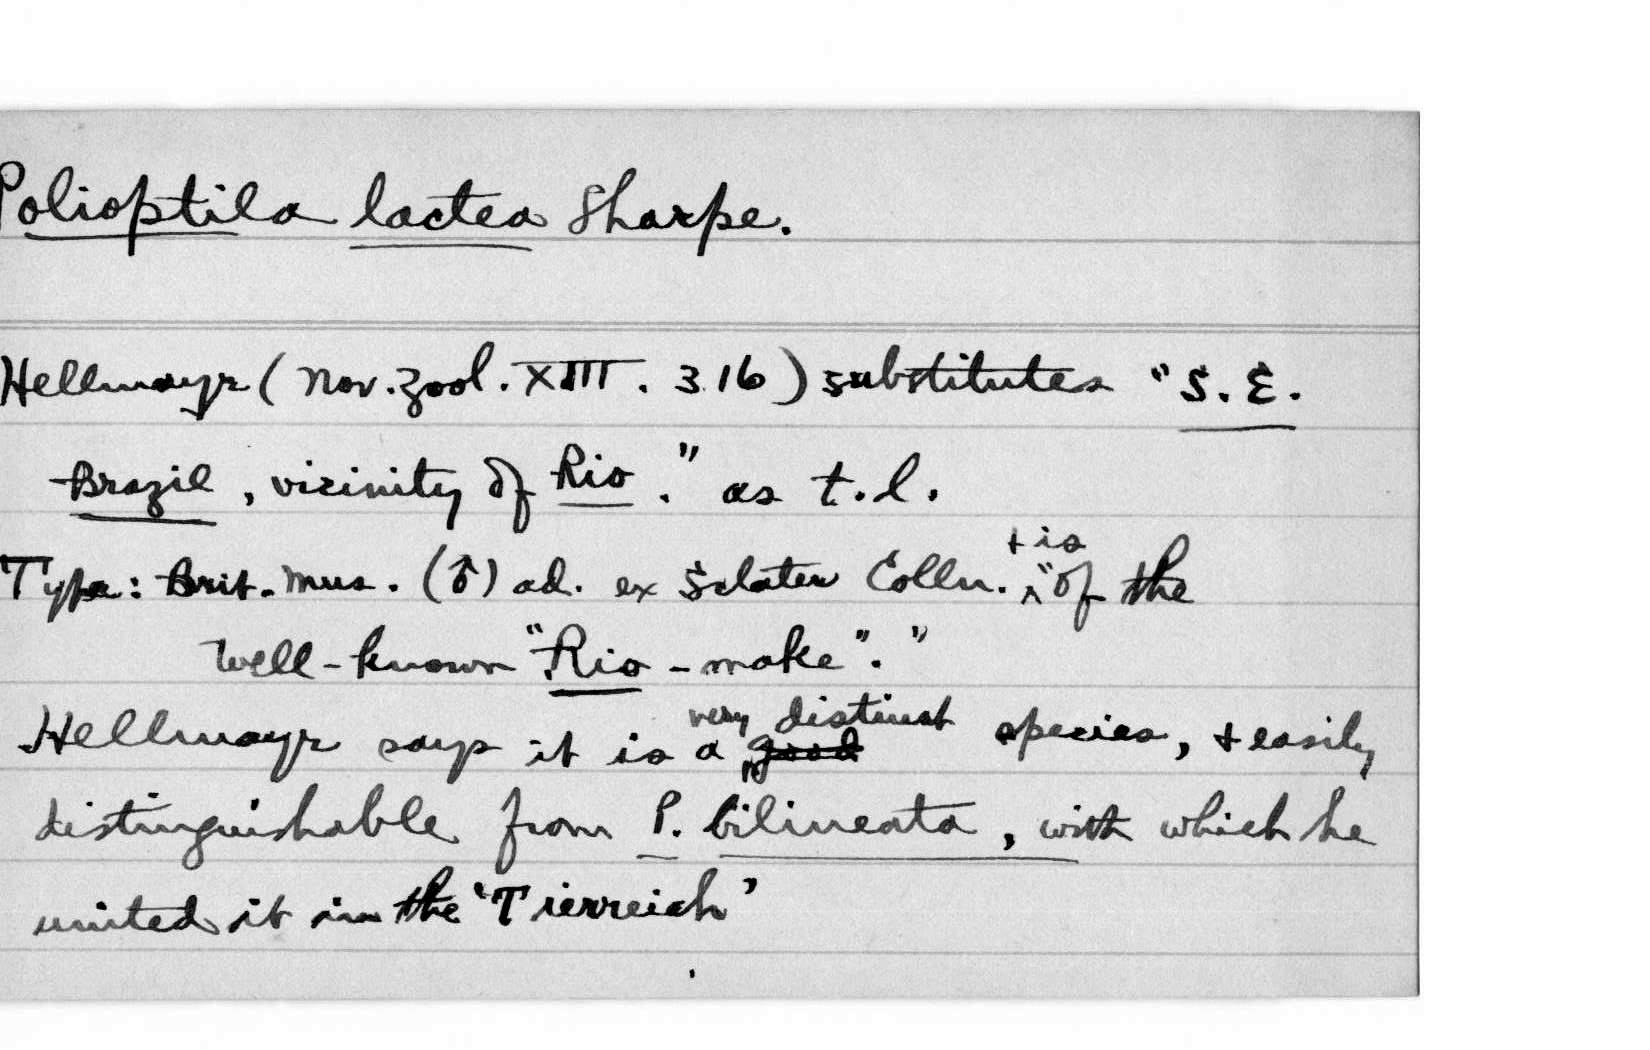 Polioptila lactea Sharpe.
Hellmayr (Nov. Zool. XIII. 316) substitutes "S. E.
Brazil, vicinity of Rio." as t.l.
Type: Brit. Mus. (♂) ad. ex Sclater Colln. + is "of the
well-known "Rio-make"."
Hellmayr says it is a very distinct good species, + easily
distinguishable from P. bilineata, with which he
united it in the 'Tierreich'